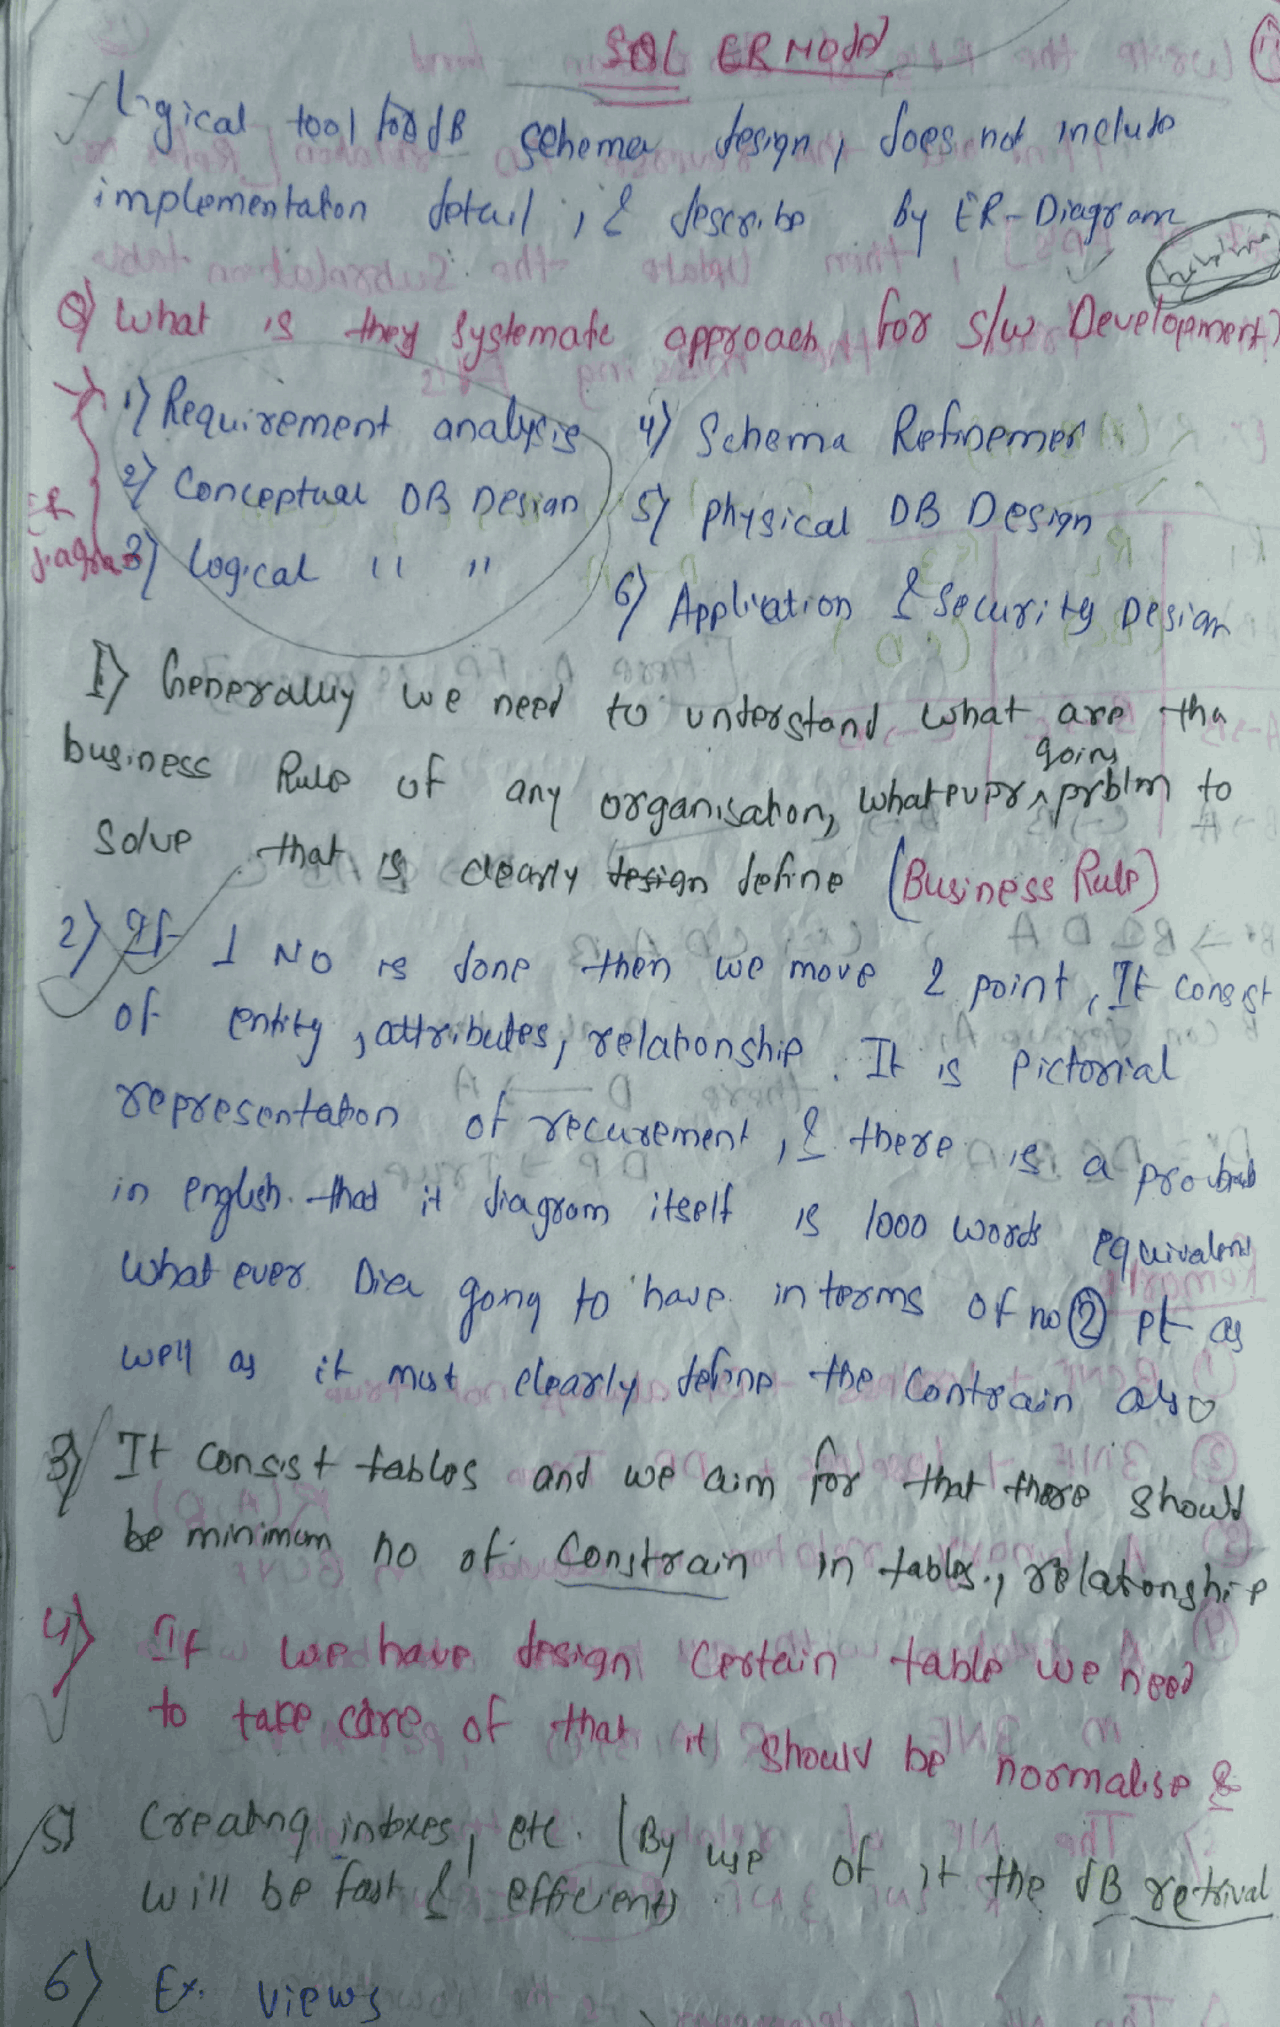 SQL ER Model
Logical tool for dB schema design, does not include
implementation detail, & describe by ER-Diagram
Q) What is they systematic approach for s/w Development?
1) Requirement analysis
2) Conceptual DB Design
3) Logical " "
ER
diagram
4) Schema Refinemen
5) Physical DB Design
6) Application & Security Design
1) Generally we need to understand what are the
business Rule of any organisation, whatever going prblm to
solve that is clearly design define (Business Rule)
2) If 1 NO is done then we move 2 point, It consist
of entity, attributes, relationship. It is Pictorial
representation of recurement, & there is a
in english that it diagram itself is 1000 words equivalent
What ever Dia going to have in terms of no 2 pt as
well as it must clearly define the contrain also
3) It consist tables and we aim for that there should
be minimum no of Constrain in tables, relationship
4) If we have design certain table we need
to take care of that it should be normalise &
5) Creating indexes, etc. (By use of it the dB retrival
will be fast & efficient)
6) Ex. views